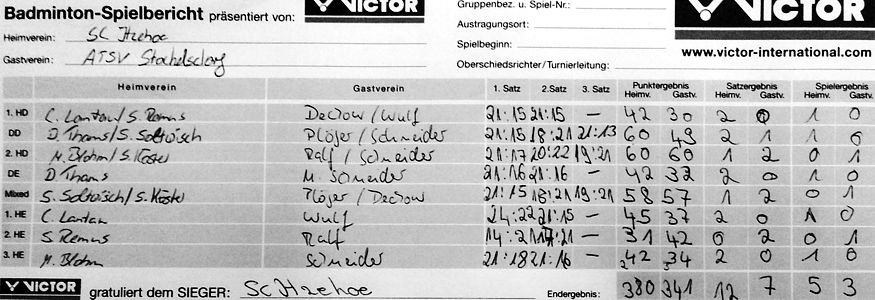 Badminton-Spielbericht präsentiert von: VICTOR
Gruppenbez. u. Spiel-Nr.: VICTOR
Heimverein: SC Itzehoe
Austragungsort:
Gastverein: ATSV Stockelsdorf
Spielbeginn: www.victor-international.com
Oberschiedsrichter/Turnierleitung:
Heimverein Gastverein 1. Satz 2.Satz 3. Satz Punktergebnis Satzergebnis Spielergebnis
Heimv. Gastv. Heimv. Gastv. Heimv. Gastv.
1. HD C. Lantau/S. Remus Decrow/Wulf 21:15 21:15 – 42 30 2 0 1 0
DD D. Thams/S. Soltwisch Plöjer/Schneider 21:15 18:21 21:13 60 49 2 1 1 0
2. HD M. Blohm/S. Köster Ralf/Schneider 21:17 20:22 19:21 60 60 1 2 0 1
DE D Thams M. Schneider 21:16 21:16 – 42 32 2 0 1 0
Mixed S. Soltwisch/S. Köster Plöjer/Decrow 21:15 18:21 19:21 58 57 1 2 0 1
1. HE C. Lantau Wulf 24:22 21:15 – 45 37 2 0 1 0
2. HE S. Remus Ralf 14:21 17:21 – 31 42 0 2 0 1
3. HE M. Blohm Schneider 21:18 21:16 – 42 34 2 0 1 0
VICTOR gratuliert dem SIEGER: SC Itzehoe Endergebnis: 380 341 12 7 5 3